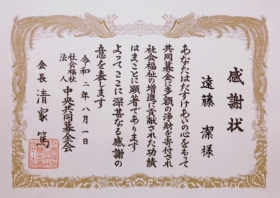 感謝状
遠藤 潔 様
あなたはたすけあいの心をもって
共同募金に多額の浄財を寄付され
社会福祉の増進に貢献された功績
はまことに顕著であります
よってここに深甚なる感謝の
意を表します
令和二年八月一日
社会福祉法人 中央共同募金会
会長 清家 篤